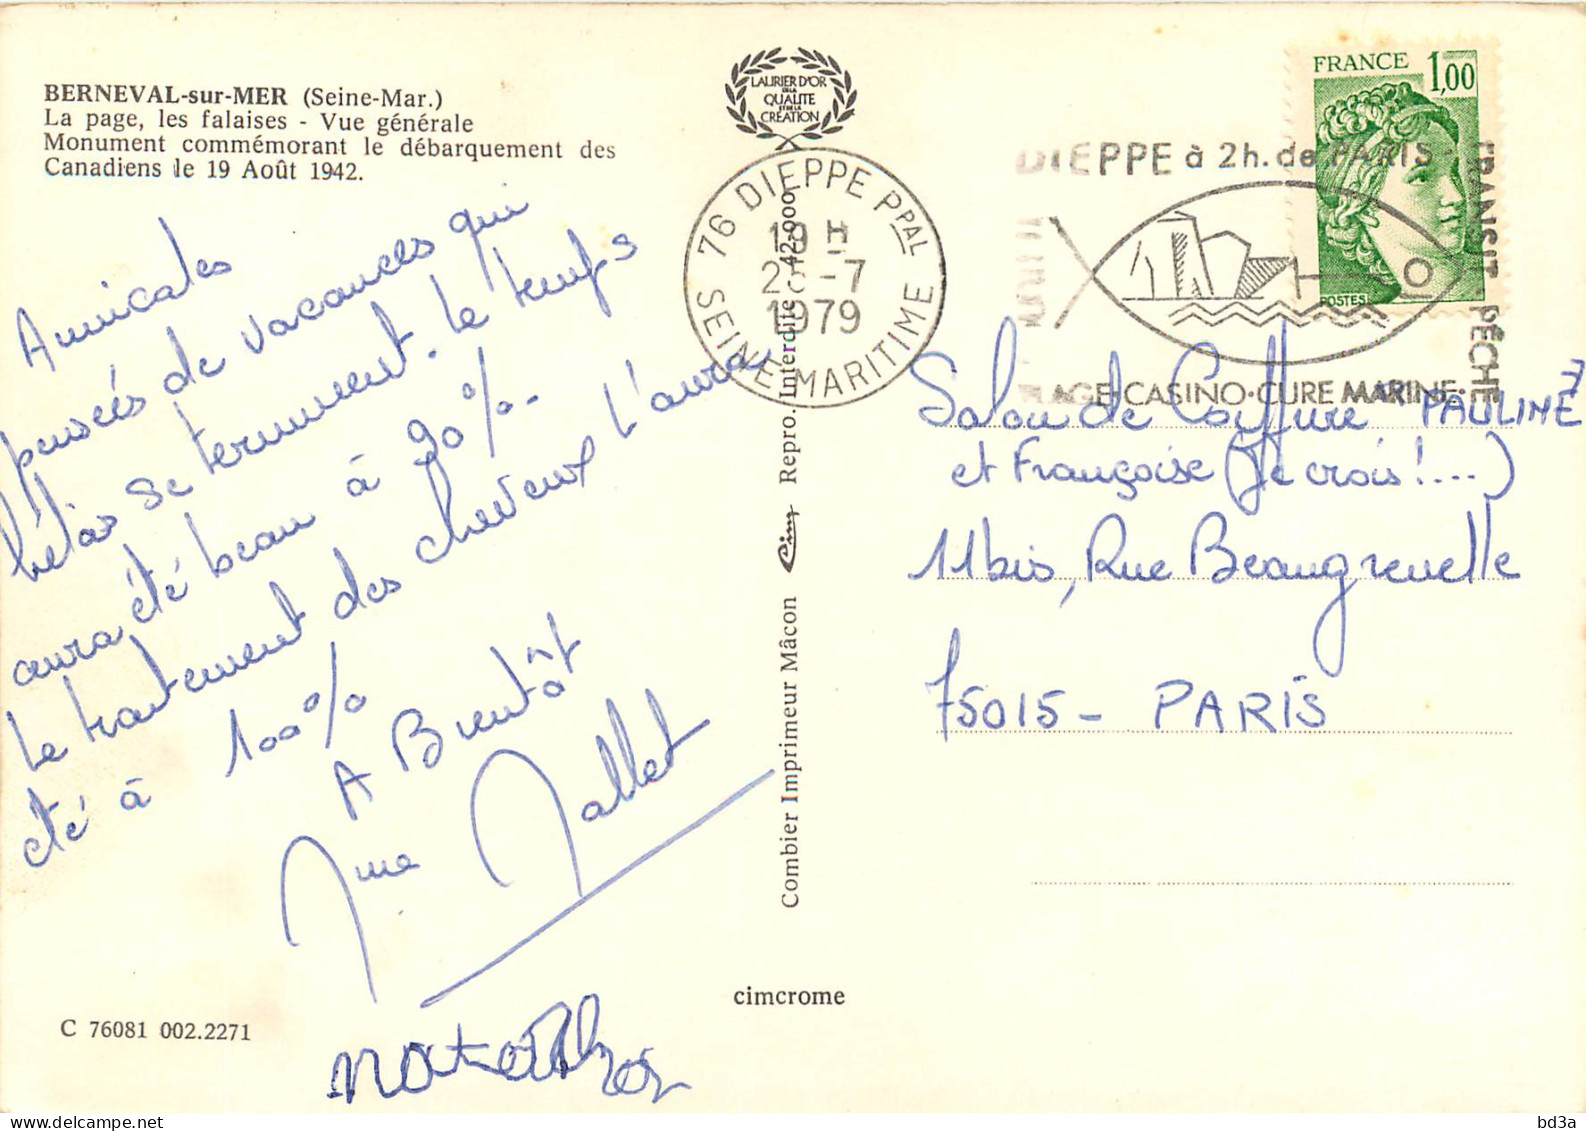 BERNEVAL-sur-MER (Seine-Mar.)
La page, les falaises - Vue générale
Monument commémorant le débarquement des
Canadiens le 19 Août 1942.
Amicales
pensées de vacances qui
hélas se terminent. le temps
aura été beau à 90%.
le traitement des cheveux l'aura
été à 100%
A Bientôt
Mallet
C 76081 002.2271
LAURIER D'OR
DE LA
QUALITE
ET DE LA
CRÉATION
76 DIEPPE PPAL
19 H
-7
1979
SEINE MARITIME
Combier Imprimeur Mâcon Cim Repro. Interdite - 42.000
cimcrome
FRANCE 1,00
POSTES
DIEPPE à 2h. de PARIS -
TRANSIT - PÊCHE
AGE·CASINO·CURE MARINE·
Salon de Coiffure PAULINE
et Françoise (Je crois!....)
11bis, Rue Beaugrenelle
75015 - PARIS
bd3a